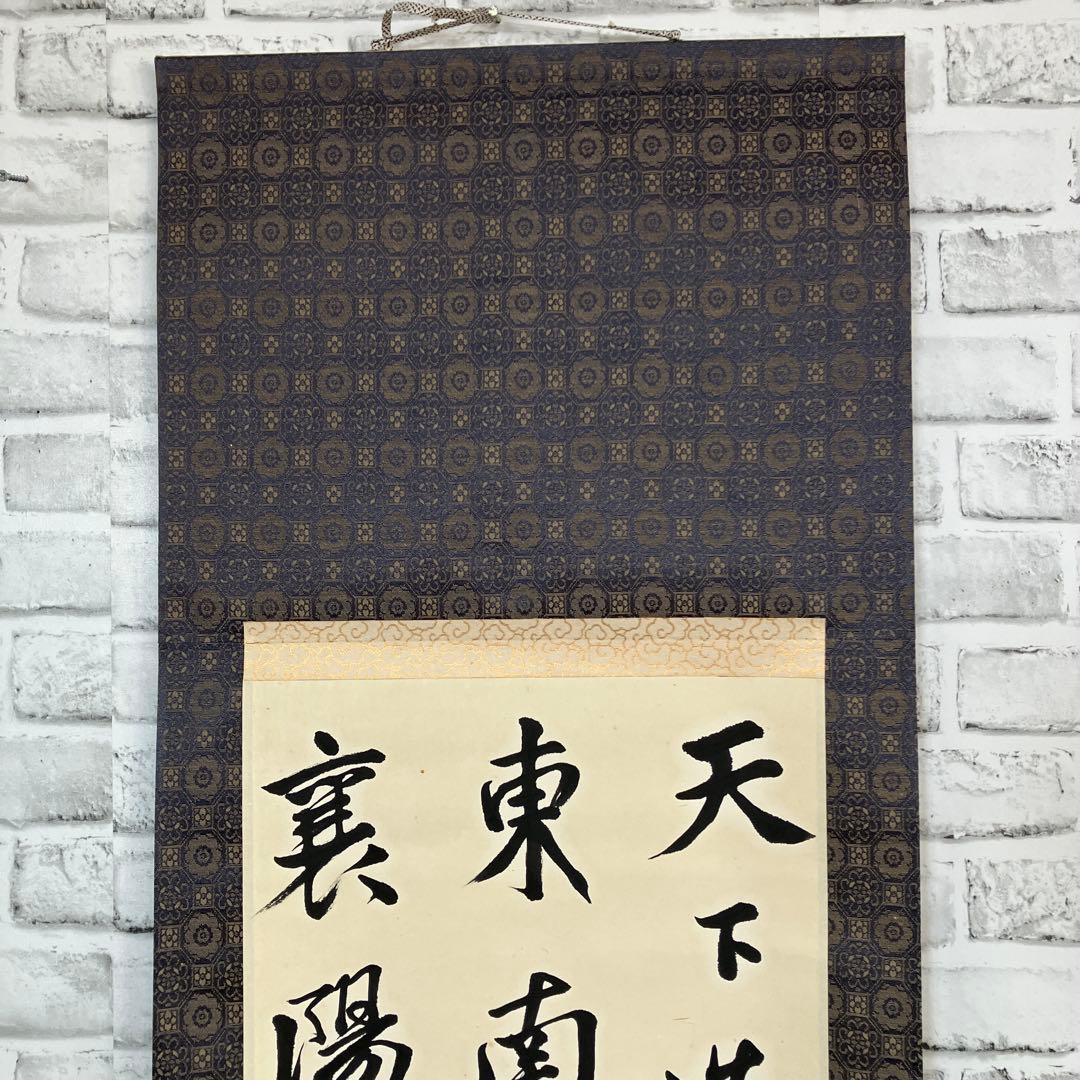 天下
東南
襄陽